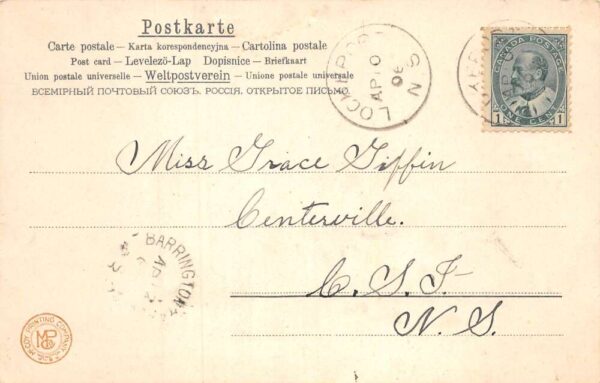 Postkarte
Carte postale – Karta korespondencyjna – Cartolina postale
Post card – Levelező-Lap Dopisnice – Briefkaart
Union postale universelle – Weltpostverein – Unione postale universale
ВСЕМІРНЫЙ ПОЧТОВЫЙ СОЮЗЪ. РОССІЯ. ОТКРЫТОЕ ПИСЬМО.
LOCKEPORT
AP 10
06
N.S.
CANADA POSTAGE
1 ONE CENT 1
Miss Grace Giffin
Centerville.
C. S. I.
N. S.
BARRINGTON
AP 12
PRINTING COMPANY